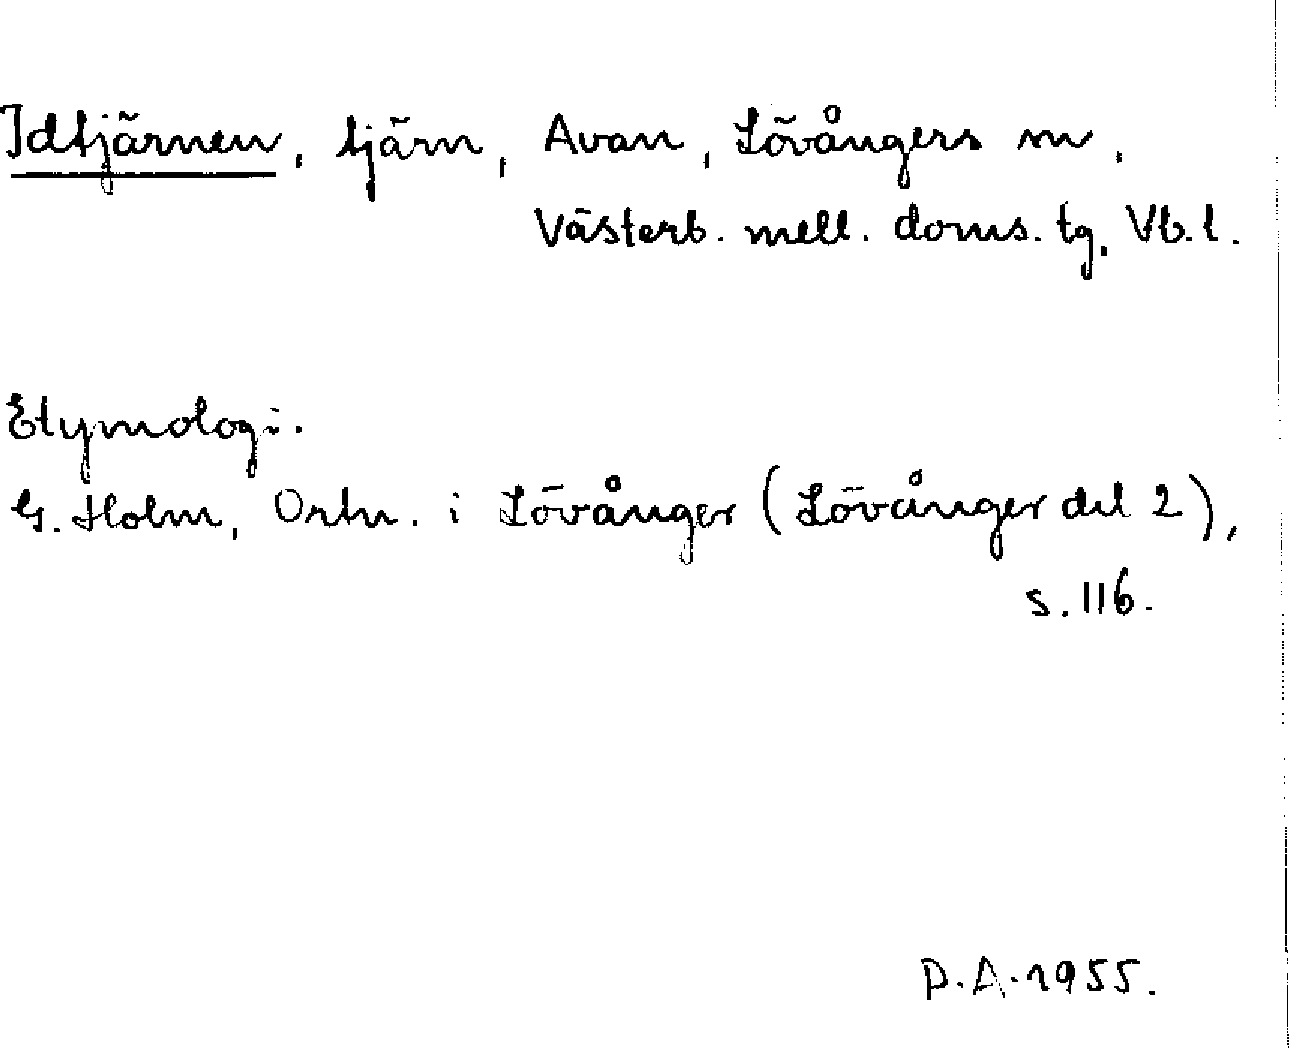 Idtjärnen, tjärn, Avan, Lövångers sn,
Västerb. mell. doms. tg, Vb. l.
Etymologi.
G. Holm, Ortn. i Lövånger (Lövånger del 2),
s. 116.
D. A. 1955.